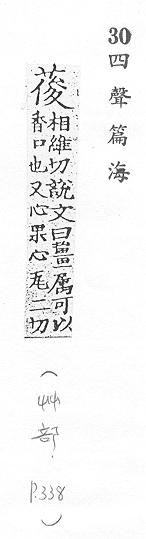 30四聲篇海
葰相維切說文曰薑屬可以
香口也又心果心瓦二切
(艸部. P.338)